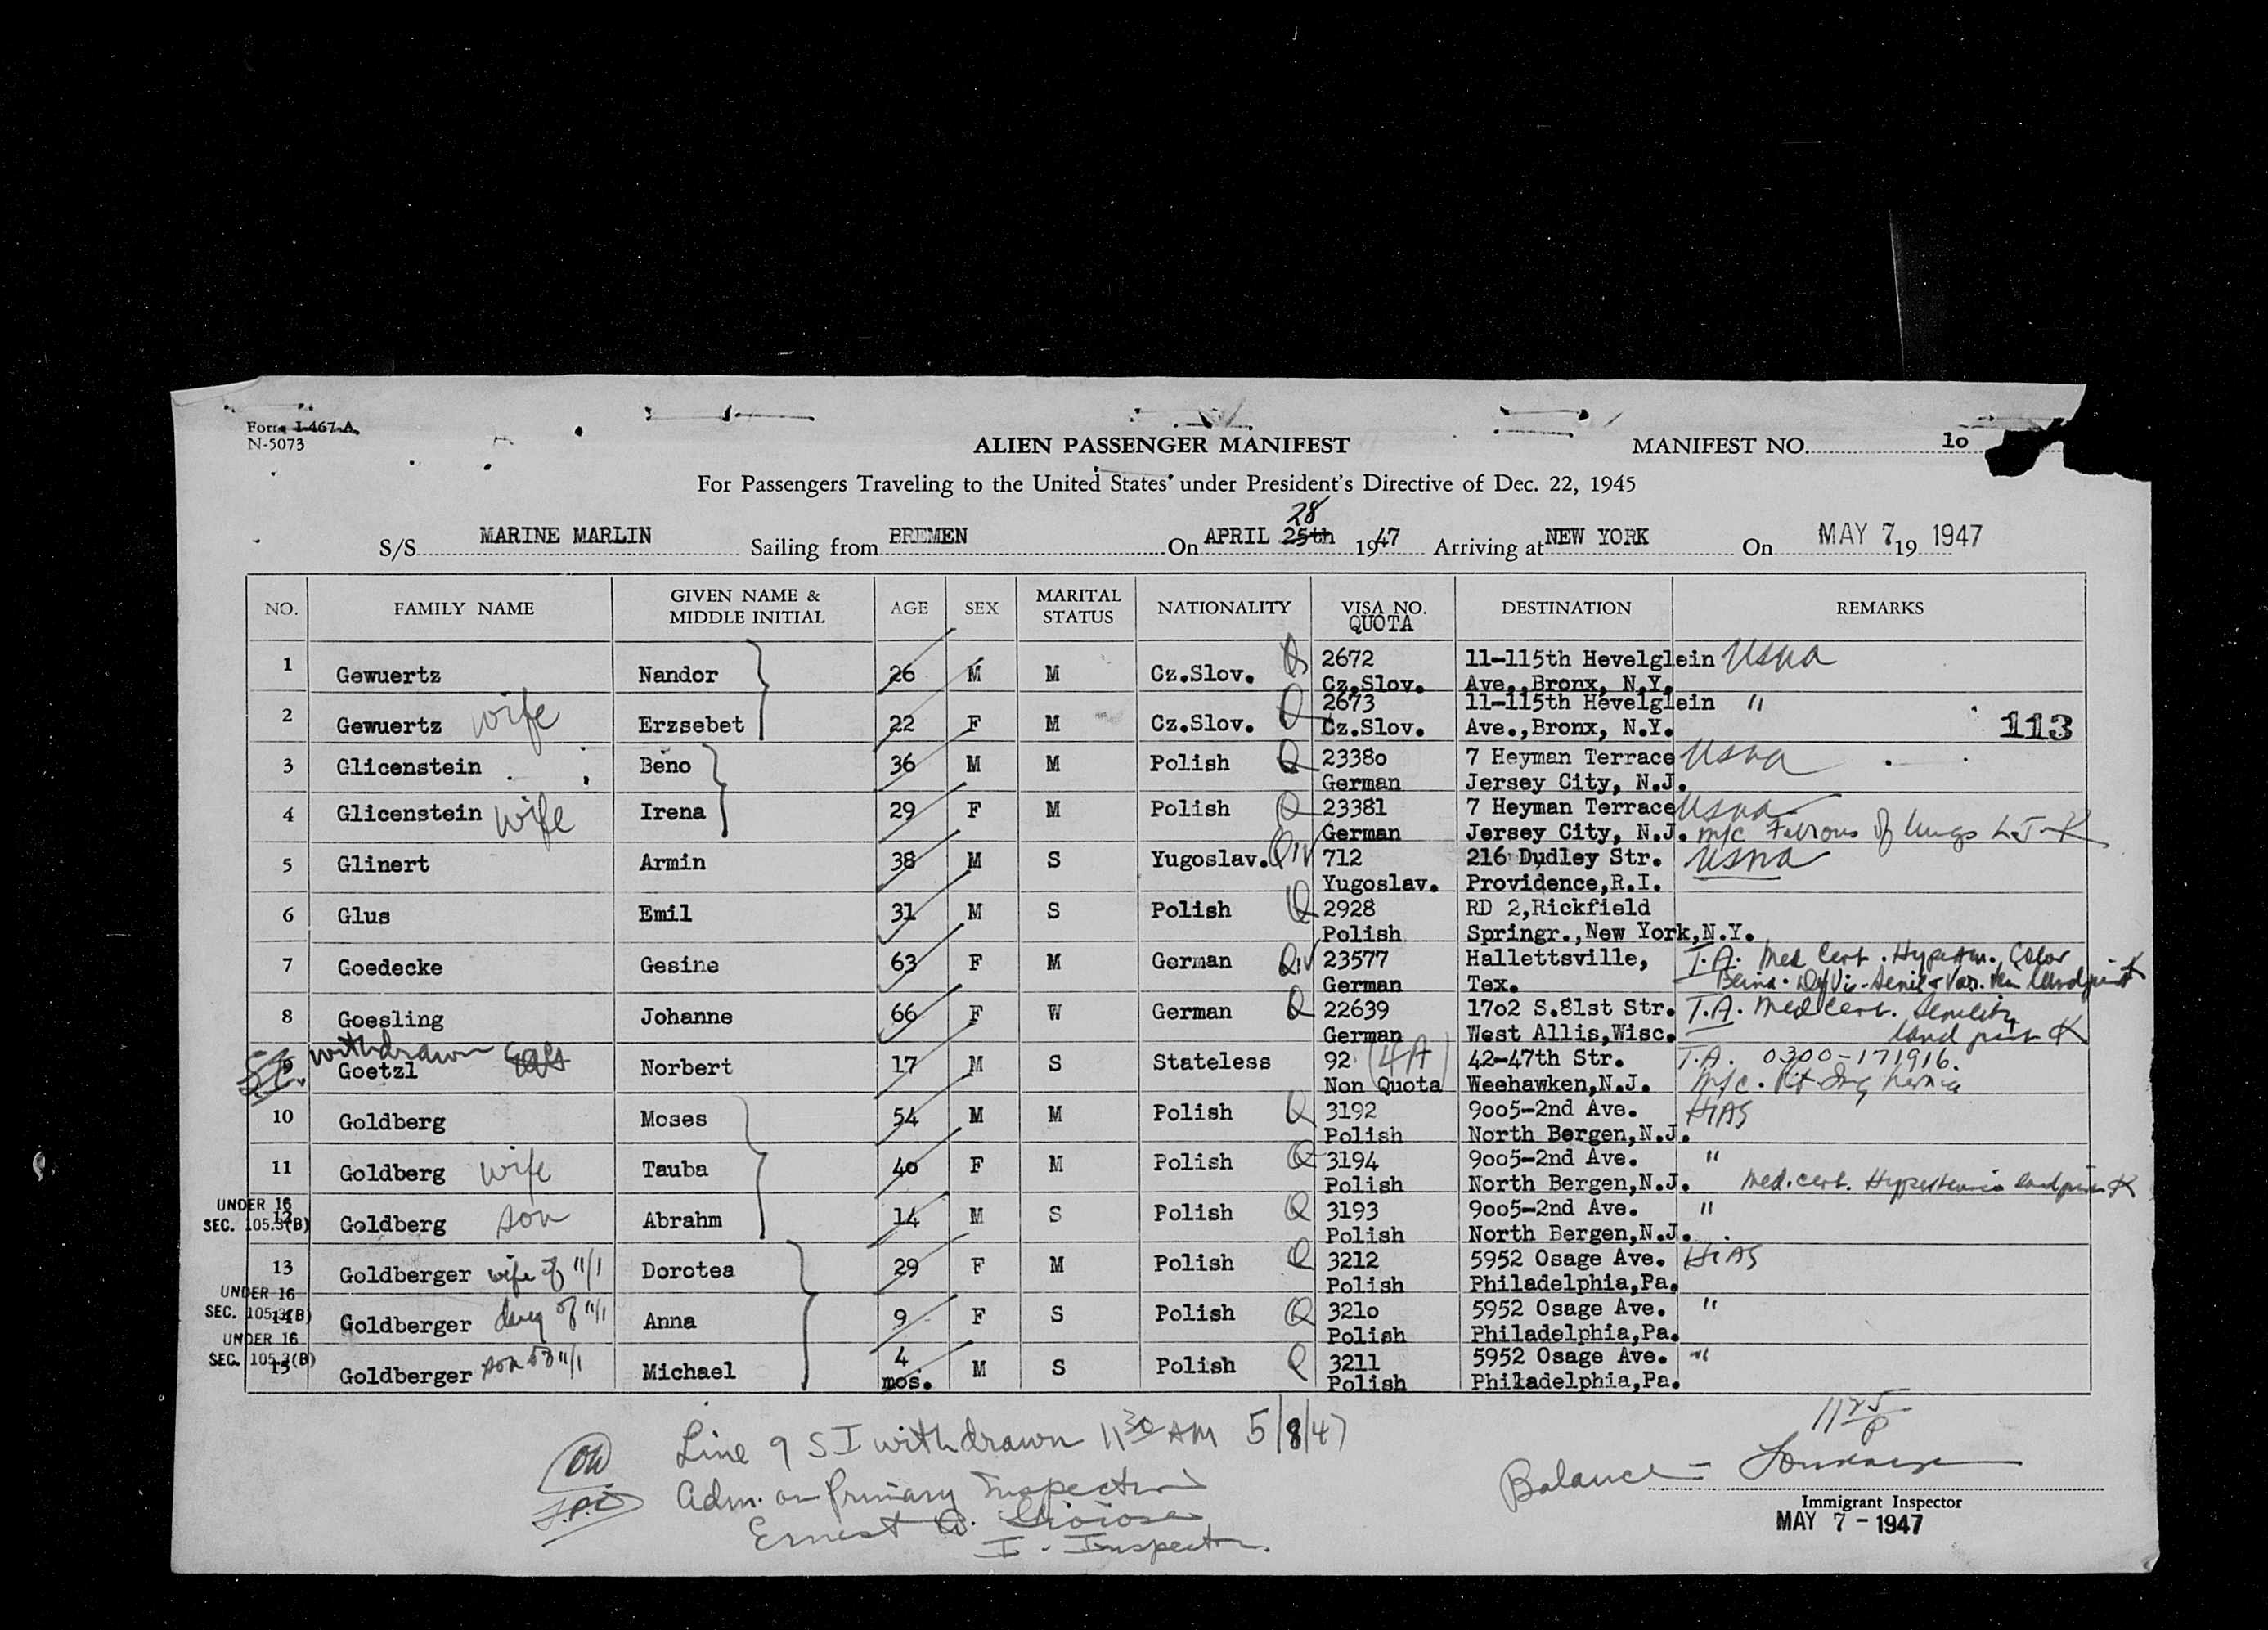 Form I-467-A
N-5073
ALIEN PASSENGER MANIFEST
MANIFEST NO. 1o
For Passengers Traveling to the United States under President's Directive of Dec. 22, 1945
28
S/S MARINE MARLIN Sailing from BREMEN On APRIL 25th 1947 Arriving at NEW YORK On MAY 7 19 1947
NO. FAMILY NAME GIVEN NAME & MIDDLE INITIAL AGE SEX MARITAL STATUS NATIONALITY VISA NO. QUOTA DESTINATION REMARKS
1 Gewuertz Nandor 26 M M Cz.Slov. Q 2672 11-115th Hevelglein USNA
Cz.Slov. Ave.,Bronx, N.Y.
2 Gewuertz wife Erzsebet 22 F M Cz.Slov. Q 2673 11-115th Hevelglein "
Cz.Slov. Ave.,Bronx, N.Y.
113
3 Glicenstein Beno 36 M M Polish Q 2338o 7 Heyman Terrace USNA
German Jersey City, N.J.
4 Glicenstein wife Irena 29 F M Polish Q 23381 7 Heyman Terrace USNA
German Jersey City, N.J. m/c of lungs
5 Glinert Armin 38 M S Yugoslav. QIV 712 216 Dudley Str. USNA
Yugoslav. Providence,R.I.
6 Glus Emil 31 M S Polish Q 2928 RD 2,Rickfield
Polish Springr.,New York,N.Y.
7 Goedecke Gesine 63 F M German QIV 23577 Hallettsville, T.A. Med Cert.
German Tex.
8 Goesling Johanne 66 F W German Q 22639 17o2 S.81st Str. T.A. Med cert. Senility
German West Allis,Wisc.
S.I. withdrawn
9 Goetzl Norbert 17 M S Stateless 92 (4A) 42-47th Str. T.A. 0300-171916.
Non Quota Weehawken,N.J. m/c. Rt Ing hernia
10 Goldberg Moses 54 M M Polish Q 3192 9oo5-2nd Ave. HIAS
Polish North Bergen,N.J.
11 Goldberg wife Tauba 4o F M Polish Q 3194 9oo5-2nd Ave. "
Polish North Bergen,N.J. Med. cert.
UNDER 16
SEC. 105.3(B)
12 Goldberg son Abrahm 14 M S Polish Q 3193 9oo5-2nd Ave. "
Polish North Bergen,N.J.
13 Goldberger wife of 11/1 Dorotea 29 F M Polish Q 3212 5952 Osage Ave. HIAS
Polish Philadelphia,Pa.
UNDER 16
SEC. 105.3(B)
14 Goldberger daug of 11/1 Anna 9 F S Polish Q 321o 5952 Osage Ave. "
Polish Philadelphia,Pa.
UNDER 16
SEC. 105.3(B)
15 Goldberger son of 11/1 Michael 4 mos. M S Polish Q 3211 5952 Osage Ave. "
Polish Philadelphia,Pa.
Line 9 SI withdrawn 11 30 AM 5/8/47
Adm. on Primary Inspection
Ernest
I. Inspector.
11 25
P
Balance -
Immigrant Inspector
MAY 7 - 1947